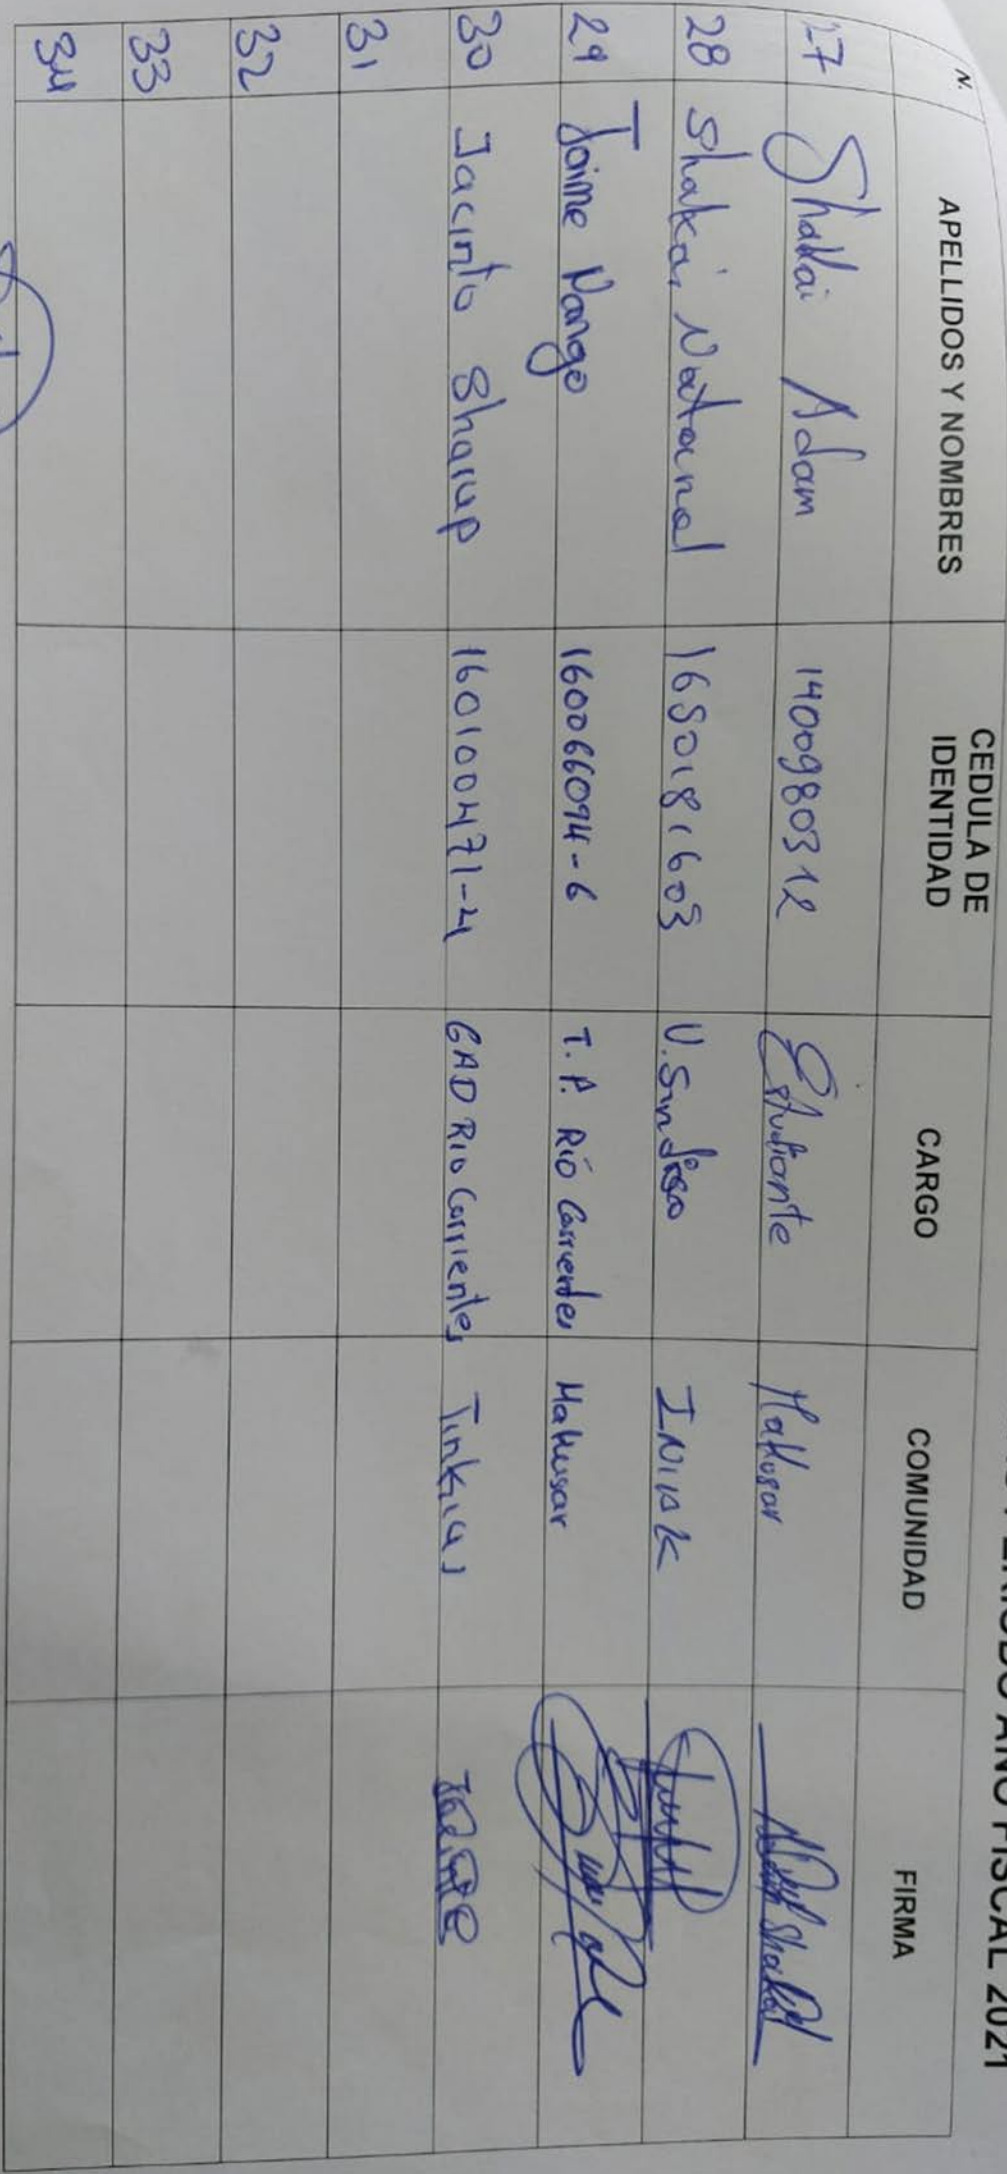 AÑO FISCAL 2021
N. APELLIDOS Y NOMBRES CEDULA DE IDENTIDAD CARGO COMUNIDAD FIRMA
27 Shakai Adam 1400980312 Estudiante Makusar
28 Shakai Natanael 1650181603 V. Sindico INIAK
29 Jaime Nango 160066094-6 T.P. Río Corrientes Makusar
30 Jacinto Sharup 160100471-4 GAD Rio Corrientes Tinkias
31
32
33
34